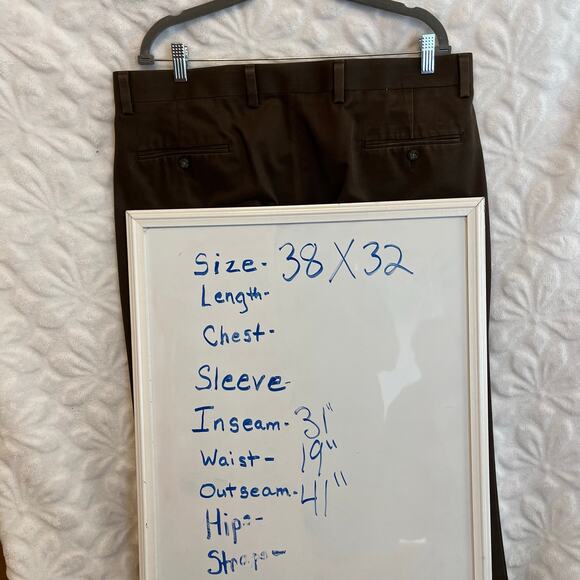 Size- 38 X 32
Length-
Chest-
Sleeve-
Inseam- 31"
Waist- 19"
Outseam- 41"
Hips-
Straps-